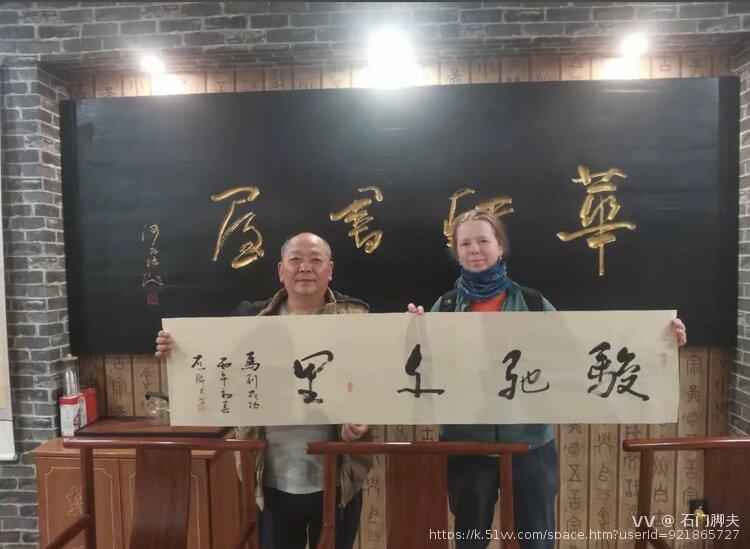 華書屋
駿馳千里
馬到成功
丙午初
VV @ 石门脚夫
https://k.51w.com/space.htm?userId=921865727